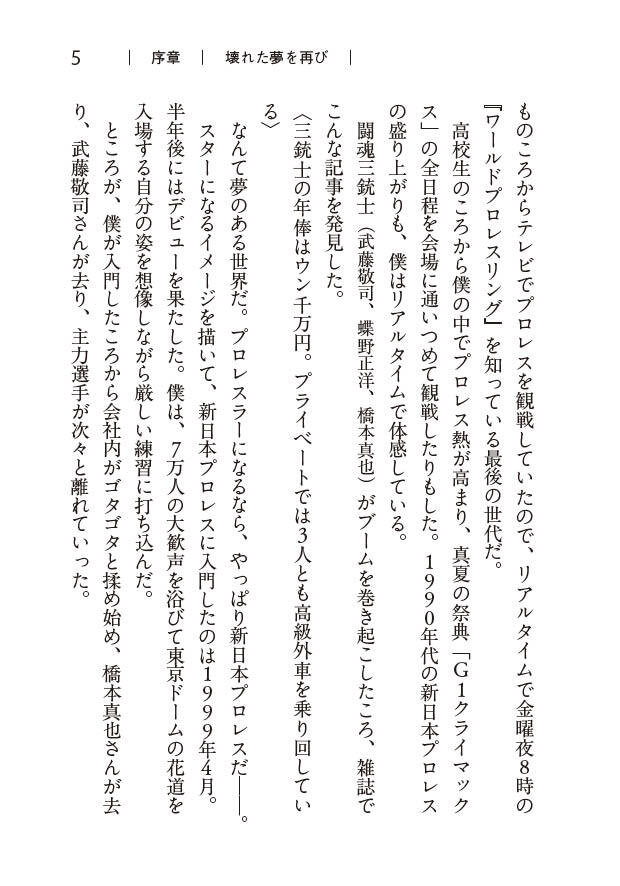 5 ｜ 序章 ｜ 壊れた夢を再び ｜
ものころからテレビでプロレスを観戦していたので、リアルタイムで金曜夜8時の
『ワールドプロレスリング』を知っている最後の世代だ。
高校生のころから僕の中でプロレス熱が高まり、真夏の祭典「G1クライマック
ス」の全日程を会場に通いつめて観戦したりもした。1990年代の新日本プロレス
の盛り上がりも、僕はリアルタイムで体感している。
闘魂三銃士（武藤敬司、蝶野正洋、橋本真也）がブームを巻き起こしたころ、雑誌で
こんな記事を発見した。
〈三銃士の年俸はウン千万円。プライベートでは3人とも高級外車を乗り回してい
る〉
なんて夢のある世界だ。プロレスラーになるなら、やっぱり新日本プロレスだ――。
スターになるイメージを描いて、新日本プロレスに入門したのは1999年4月。
半年後にはデビューを果たした。僕は、7万人の大歓声を浴びて東京ドームの花道を
入場する自分の姿を想像しながら厳しい練習に打ち込んだ。
ところが、僕が入門したころから会社内がゴタゴタと揉め始め、橋本真也さんが去
り、武藤敬司さんが去り、主力選手が次々と離れていった。